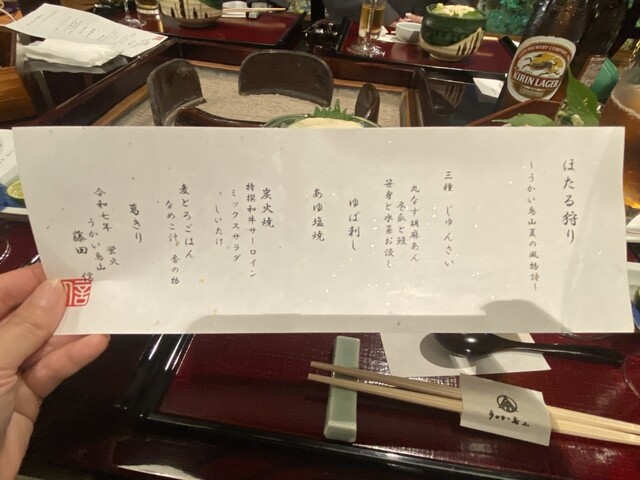 ほたる狩り
~うかい鳥山夏の風物詩~
三種 じゅんさい
丸なす胡麻あん
冬瓜と鰻
笹身と水菜お浸し
ゆば刺し
あゆ塩焼
炭火焼
特撰和牛サーロイン
ミックスサラダ
しいたけ
麦とろごはん
なめこ汁 香の物
葛きり
令和七年 蛍火
うかい鳥山
藤田
KIRIN LAGER
うかい鳥山